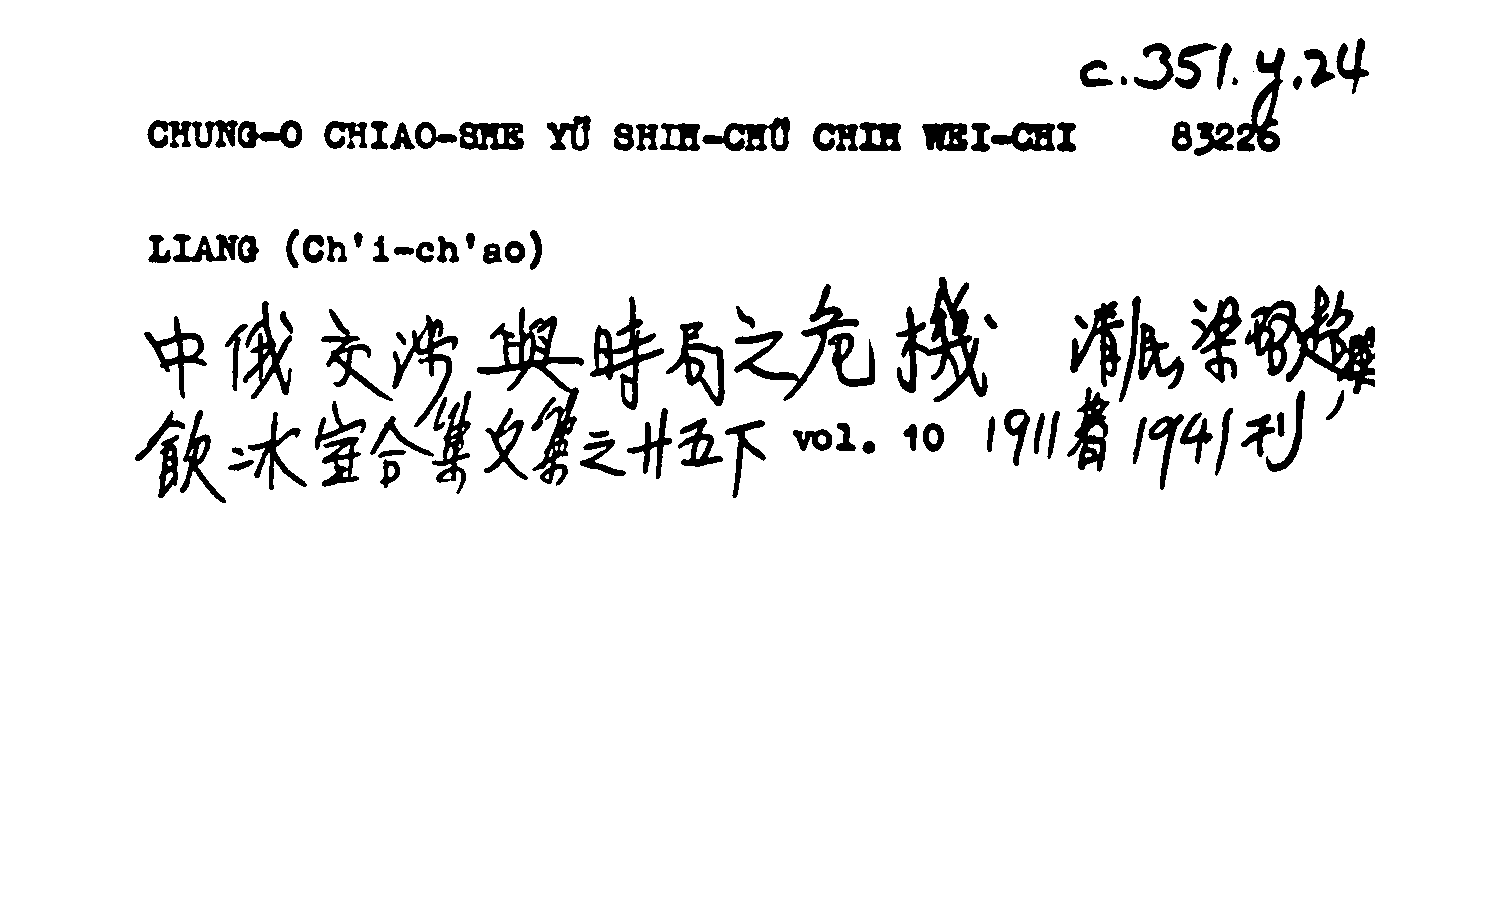 c.351.y.24
CHUNG-O CHIAO-SHE YÜ SHIH-CHÜ CHIH WEI-CHI 83226
LIANG (Ch'i-ch'ao)
中俄交涉與時局之危機 清民梁啓超撰
飲冰室合集文集之廿五下 vol. 10 1911著 1941刊